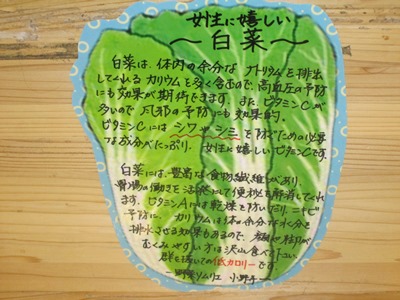 女性に嬉しい
〜白菜〜
白菜は、体内の余分なナトリウムを排出
してくれるカリウムを多く含むので、高血圧の予防
にも効果が期待できます。また、ビタミンCが
多いので風邪の予防にも効果的。
ビタミンCにはシワやシミを防ぐための必要
な成分がたっぷり。女性に嬉しいビタミンCです。
白菜には、豊富な食物繊維があり、
胃腸の働きを活発にして便秘を解消してくれ
ます。ビタミンAには乾燥を防いだり、ニキビ
予防に。カリウムは体の余分な水分を
排水させる効果もあるので、や脚が
むくみやすい方は沢山食べて下さい。
群を抜いての低カロリーです
―野菜ソムリエ 小野